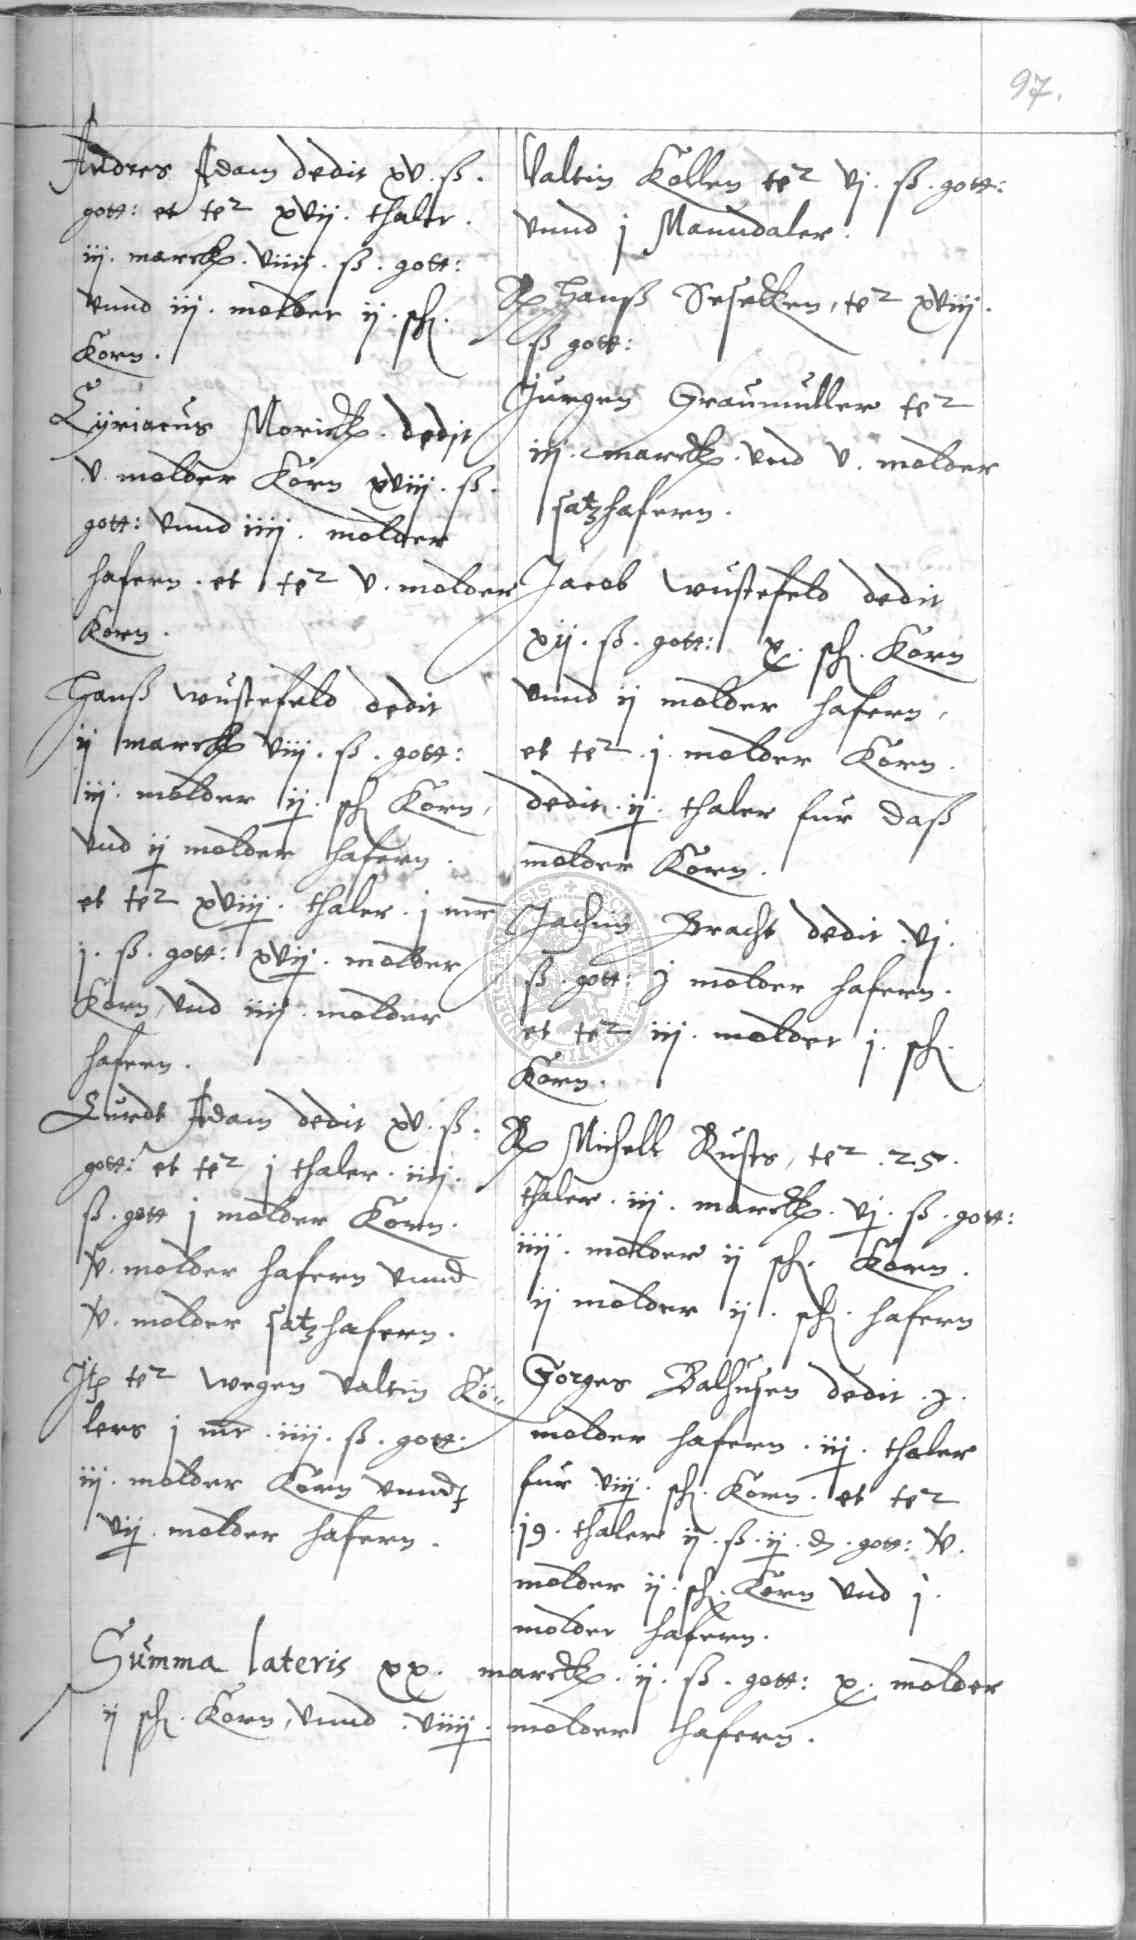 97.
Andres Adam dedit xv. ß.
gott: et te2 xvij. thaler.
iij. marck. viiij. ß. gott:
vnnd iij. molder ij. sch.
Korn.
Cyriacus Morick. dedit
v. molder Korn xviij. ß.
gott: vnnd iiij. molder
hafern. et te2 v. molder
Korn.
Hanß Wustefeld dedit
ij marck viij. ß. gott:
iij. molder ij. sch Korn,
vnd ij molder hafern.
et te2 xviij. thaler. j mr
j. ß. gott: xvij. molder
Korn, vnd iiij. molder
hafern.
Curdt Adam dedit xv. ß.
gott: et te2 j thaler. iiij.
ß. gott j molder Korn.
v. molder hafern vnnd
v. molder satzhafern.
Jtem te2 wegen Valtin Kö-
lers j mr. iiij. ß. gott.
iij. molder Korn vnnd
vij. molder hafern.
Valtin Kollen te2 vj. ß. gott:
vnnd j Manndaler.
Rp Hanß Seseken, te2 xviij.
ß gott:
Jurgen Graumuller te2
iij. marck. vnd v. molder
satzhafern.
Jacob Wustefeld dedit
xij. ß. gott: x. sch. Korn
vnnd ij molder hafern,
et te2. j. molder Korn.
dedit. ij. thaler fur daß
molder Korn.
Jachim Bracht dedit. vj.
ß. gott: j molder hafern.
et te2 iij. molder j. sch.
Korn.
Rp Michell Rusts, te2. 25.
thaler. iij. marck. vj. ß. gott:
iiij. molder ij sch. Korn.
ij molder ij. sch. hafern
Gorges Balhusen dedit. j.
molder hafern. iij. thaler
fur viij. sch. Korn. et te2
19. thaler ij. ß. ij. d. gott: v.
molder ij. sch. Korn vnd j.
molder hafern.
Summa lateris xx. marck. ij. ß. gott: x. molder
ij sch. Korn, vnnd. viiij. molder hafern.